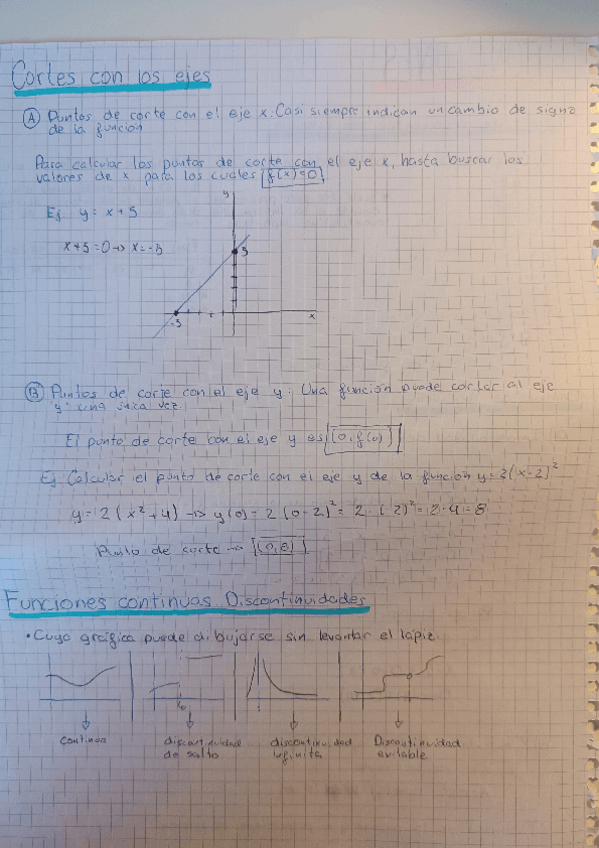 Cortes con los ejes
A Puntos de corte con el eje x: Casi siempre indican un cambio de signo
de la función
Para calcular los puntos de corte con el eje x, hasta buscar los
valores de x para los cuales f(x)=0
Ej y = x+5
x+5=0 -> x=-5
y
5
-5
x
B Puntos de corte con el eje y: Una función puede cortar al eje
"y" una única vez.
El punto de corte con el eje y es (0, f(0))
Ej Calcular el punto de corte con el eje y de la función y=2(x-2)²
y = 2(x²+4) -> y(0) = 2(0-2)² = 2·(2)² = 2·4 = 8
Punto de corte -> (0,8)
Funciones continuas Discontinuidades
• Cuya gráfica puede dibujarse sin levantar el lápiz.
x₀
Continua
discontinuidad
de salto
discontinuidad
infinita
Discontinuidad
evitable